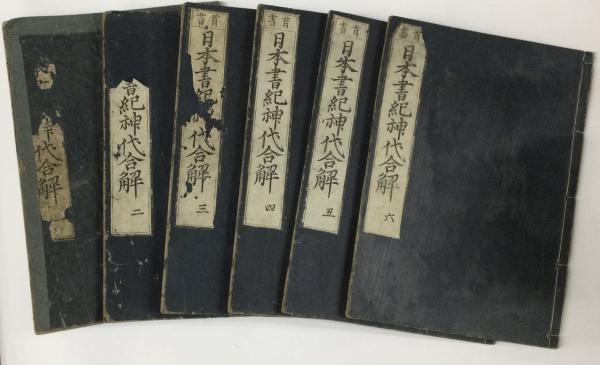 首書
日本書紀神代合解
六
首書
日本書紀神代合解
五
首書
日本書紀神代合解
四
首書
日本書
代合解
三
書紀神代合解
二
代合解